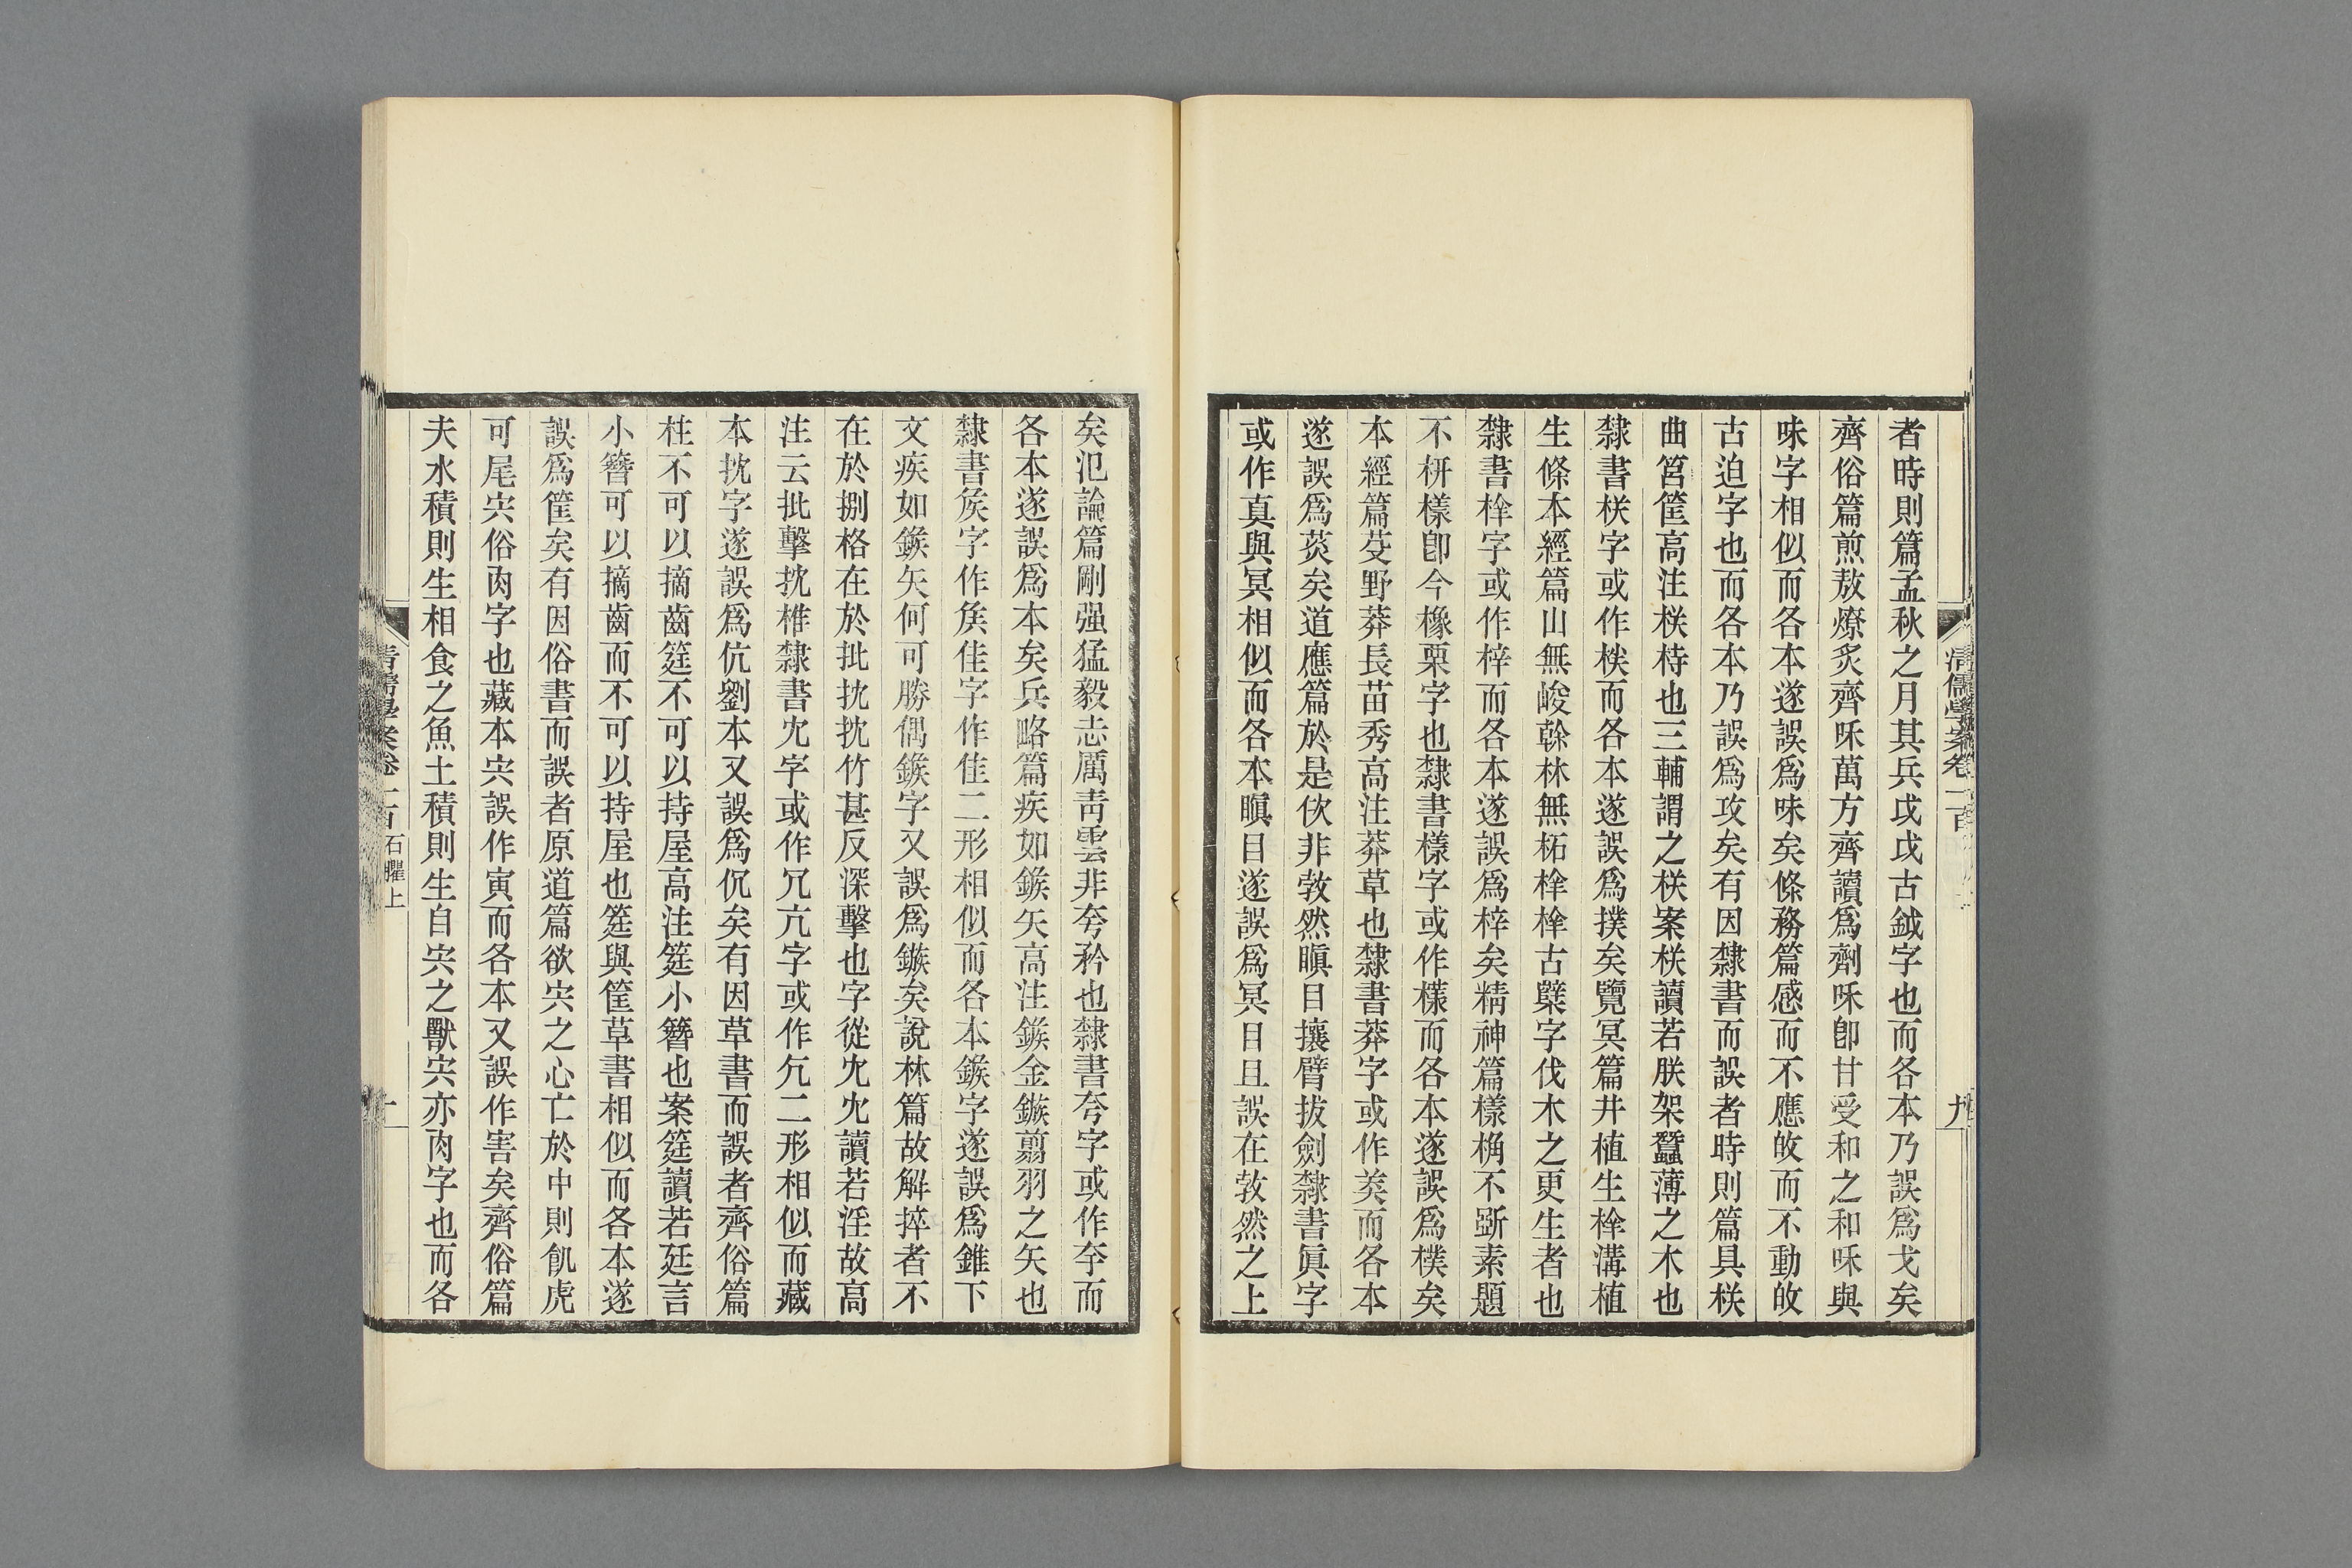 者時則篇孟秋之月其兵戉戉古鉞字也而各本乃誤爲戈矣
齊俗篇煎敖燎炙齊𠰸萬方齊讀爲劑𠰸卽甘受和之和𠰸與
味字相似而各本遂誤爲味矣條務篇感而不應敀而不動敀
古迫字也而各本乃誤爲攻矣有因隸書而誤者時則篇具栚
曲筥筐高注栚㭙也三輔謂之栚案栚讀若朕架蠶薄之木也
隸書栚字或作㯍而各本遂誤爲撲矣覽冥篇井植生梓溝植
生條本經篇山無峻榦林無柘梓梓古櫱字伐木之更生者也
隸書梓字或作梓而各本遂誤爲梓矣精神篇樣桷不斲素題
不枅樣卽今橡栗字也隸書樣字或作㨾而各本遂誤爲樸矣
本經篇芟野莽長苗秀高注莽草也隸書莽字或作㷼而各本
遂誤爲菼矣道應篇於是佽非㪍然瞋目攘臂拔劍隸書眞字
或作真與冥相似而各本瞑目遂誤爲冥目且誤在㪍然之上
矣氾論篇剛强猛毅志厲靑雲非夸矜也隸書夸字或作夲而
各本遂誤爲本矣兵略篇疾如鍭矢高注鍭金鏃翦羽之矢也
隸書矦字作矦隹字作隹二形相似而各本鍭字遂誤爲錐下
文疾如鍭矢何可勝偶鍭字又誤爲鏃矣說林篇故解捽者不
在於捌格在於批㧒㧒竹甚反深擊也字從冘冘讀若淫故高
注云批擊㧒椎隸書冘字或作冗亢字或作冗二形相似而藏
本㧒字遂誤爲伉劉本又誤爲伔矣有因草書而誤者齊俗篇
柱不可以摘齒筳不可以持屋高注筳小簪也案筳讀若廷言
小簪可以摘齒而不可以持屋也筳與筐草書相似而各本遂
誤爲筐矣有因俗書而誤者原道篇欲宍之心亡於中則飢虎
可尾宍俗肉字也藏本宍誤作寅而各本又誤作害矣齊俗篇
夫水積則生相食之魚土積則生自宍之獸宍亦肉字也而各
清儒學案卷一百
九
石臞上